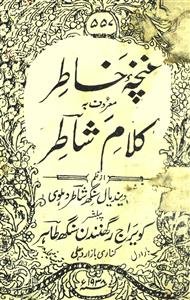 ۵۵۸
غنچۂ خاطر
معروف بہ
کلام شاطر
از قلم
دیندیال سنگھ شاطر دہلوی
پبلشر
کویراج رگھنندن سنگھ طاہر
کناری بازار دہلی
۱۹۳۸